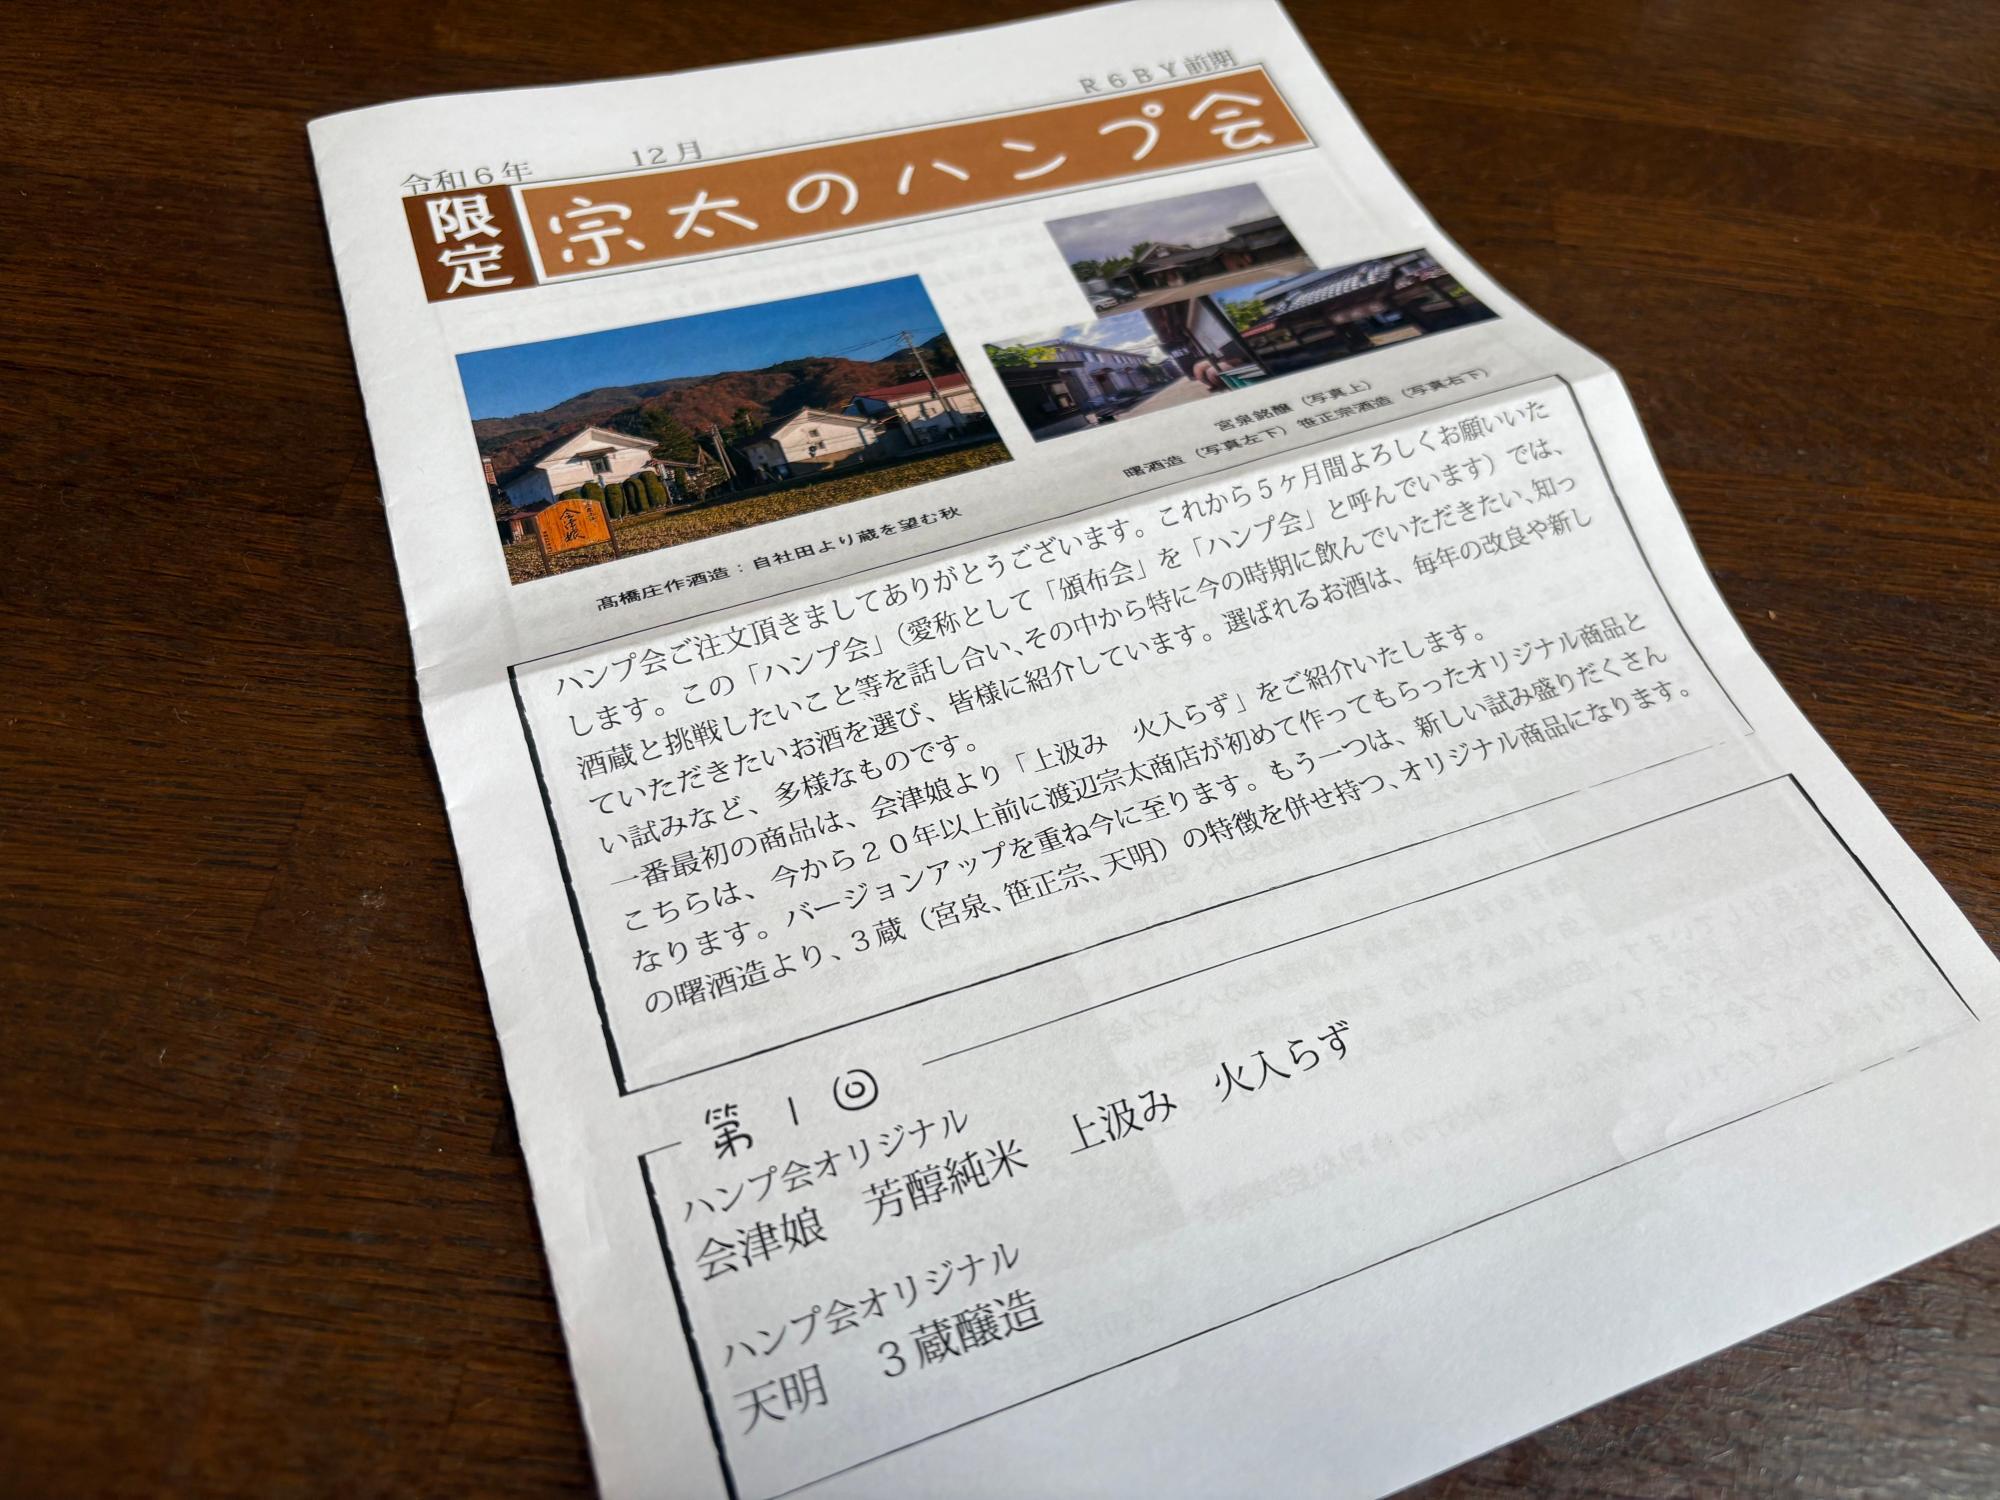 R6BY前期
令和6年 12月
限定
宗太のハンプ会
会津娘
髙橋庄作酒造:自社田より蔵を望む秋
宮泉銘醸(写真上)
曙酒造(写真左下)笹正宗酒造(写真右下)
ハンプ会ご注文頂きましてありがとうございます。これから5ヶ月間よろしくお願いいた
します。この「ハンプ会」(愛称として「頒布会」を「ハンプ会」と呼んでいます)では、
酒蔵と挑戦したいこと等を話し合い、その中から特に今の時期に飲んでいただきたい、知っ
ていただきたいお酒を選び、皆様に紹介しています。選ばれるお酒は、毎年の改良や新し
い試みなど、多様なものです。
一番最初の商品は、会津娘より「上汲み 火入らず」をご紹介いたします。
こちらは、今から20年以上前に渡辺宗太商店が初めて作ってもらったオリジナル商品と
なります。バージョンアップを重ね今に至ります。もう一つは、新しい試み盛りだくさん
の曙酒造より、3蔵(宮泉、笹正宗、天明)の特徴を併せ持つ、オリジナル商品になります。
第1回
ハンプ会オリジナル
会津娘 芳醇純米 上汲み 火入らず
ハンプ会オリジナル
天明 3蔵醸造